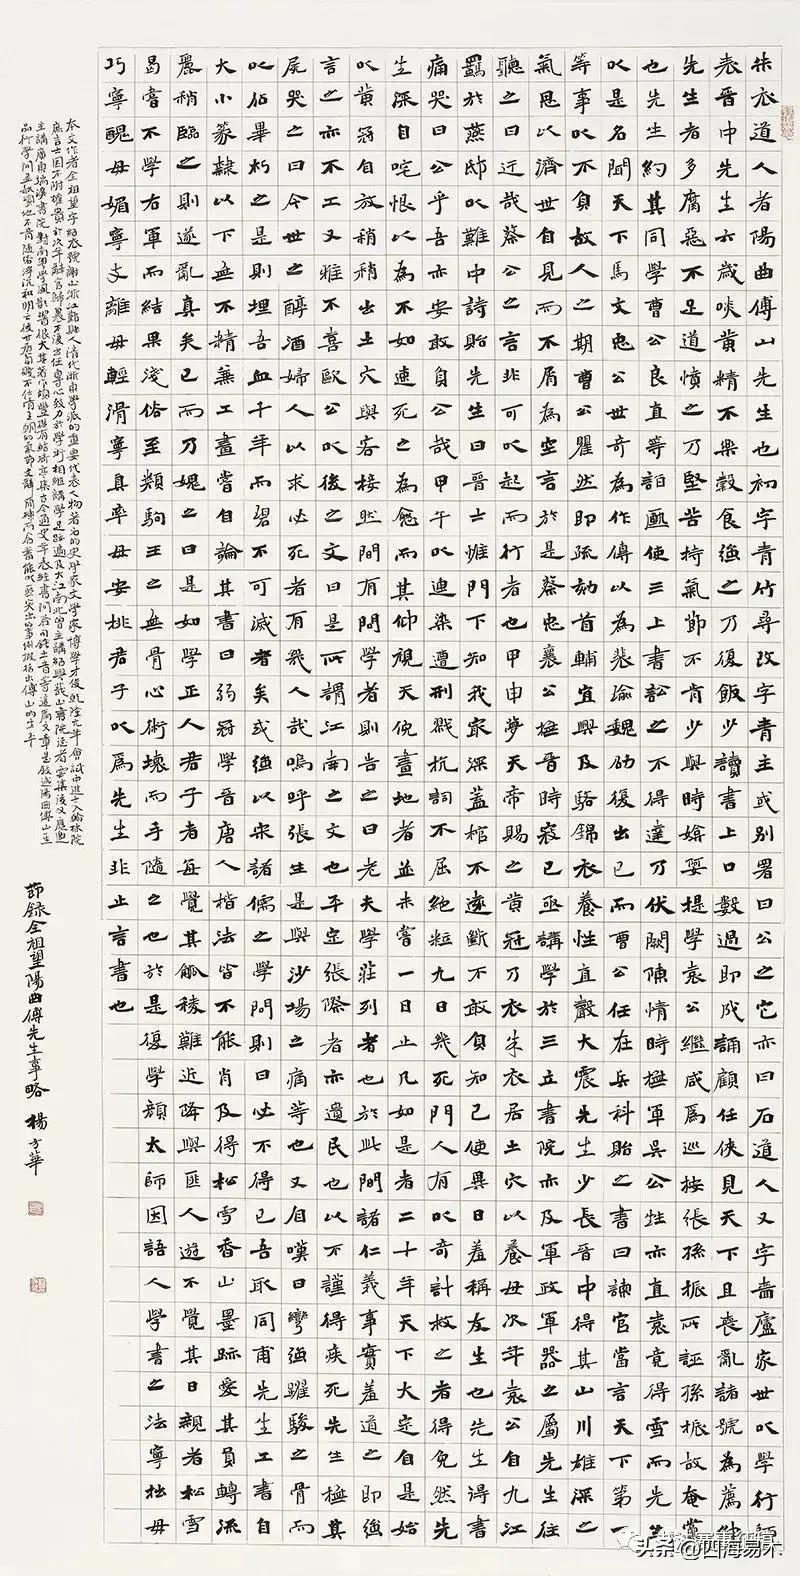 朱衣道人者陽曲傅山先生也初字青竹尋改字青主或別署曰公之它亦曰石道人又字嗇廬家世以學行師
表晉中先生六歲啖黃精不樂穀食強之乃復飯少讀書上口數過即成誦顧任俠見天下且喪亂諸號為薦紳
先生者多腐惡不足道憤之乃堅苦持氣節不肯少與時媕娿提學袁公繼咸為巡按張孫振所誣孫振故奄黨
也先生約其同學曹公良直等詣匭使三上書訟之不得達乃伏闕陳情時撫軍吳公甡亦直袁竟得雪而先生
以是名聞天下馬文忠公世奇為作傳以為裴瑜魏劭復出已而曹公任在兵科貽之書曰諫官當言天下第一
等事以不負故人之期曹公瞿然即疏劾首輔宜興及駱錦衣養性直聲大震先生少長晉中得其山川雄深之
氣思以濟世自見而不屑為空言於是蔡忠襄公撫晉時寇已亟講學於三立書院亦及軍政軍器之屬先生往
聽之曰迂哉蔡公之言非可以起而行者也甲申夢天帝賜之黃冠乃衣朱衣居土穴以養母次年袁公自九江
羈於燕邸以難中詩貽先生曰晉士惟門下知我最深蓋棺不遠斷不敢負知己使異日羞稱友生也先生得書
痛哭曰公乎吾亦安敢負公哉甲午以連染遭刑戮抗詞不屈絕粒九日幾死門人有以奇計救之者得免然先
生深自咤恨以為不如速死之為愈而其仰視天俛畫地者並未嘗一日止凡如是者二十年天下大定自是始
以黃冠自放稍稍出土穴與客接然間有問學者則告之曰老夫學莊列者也於此間諸仁義事實羞道之即強
言之亦不工又雅不喜歐公以後之文曰是所謂江南之文也平定張際者亦遺民也以不謹得疾死先生撫其
屍哭之曰今世之醇酒婦人以求必死者有幾人哉嗚呼張生是與沙場之痛等也又自嘆曰彎強躍駿之骨而
以佔畢朽之是則埋吾血千年而碧不可滅者矣或強以宋諸儒之學問則曰必不得已吾取同甫先生工書自
大小篆隸以下無不精兼工畫嘗自論其書曰弱冠學晉唐人楷法皆不能肖及得松雪香山墨跡愛其員轉流
麗稍臨之則遂亂真矣已而乃愧之曰是如學正人君子者每覺其觚稜難近降與匪人遊不覺其日親者松雪
曷嘗不學右軍而結果淺俗至類駒王之無骨心術壞而手隨之也於是復學顏太師因語人學書之法寧拙毋
巧寧醜毋媚寧支離毋輕滑寧真率毋安排君子以為先生非止言書也
本文作者全祖望字紹衣號謝山浙江鄞縣人清代浙東學派的重要代表人物著名的史學家文學家博學才俊乾隆元年會試中進士入翰林院
主講廣東端溪書院對南粵學風影響很大其著作頗豐
節錄全祖望陽曲傅先生事略 楊方華
头条 @四海易木